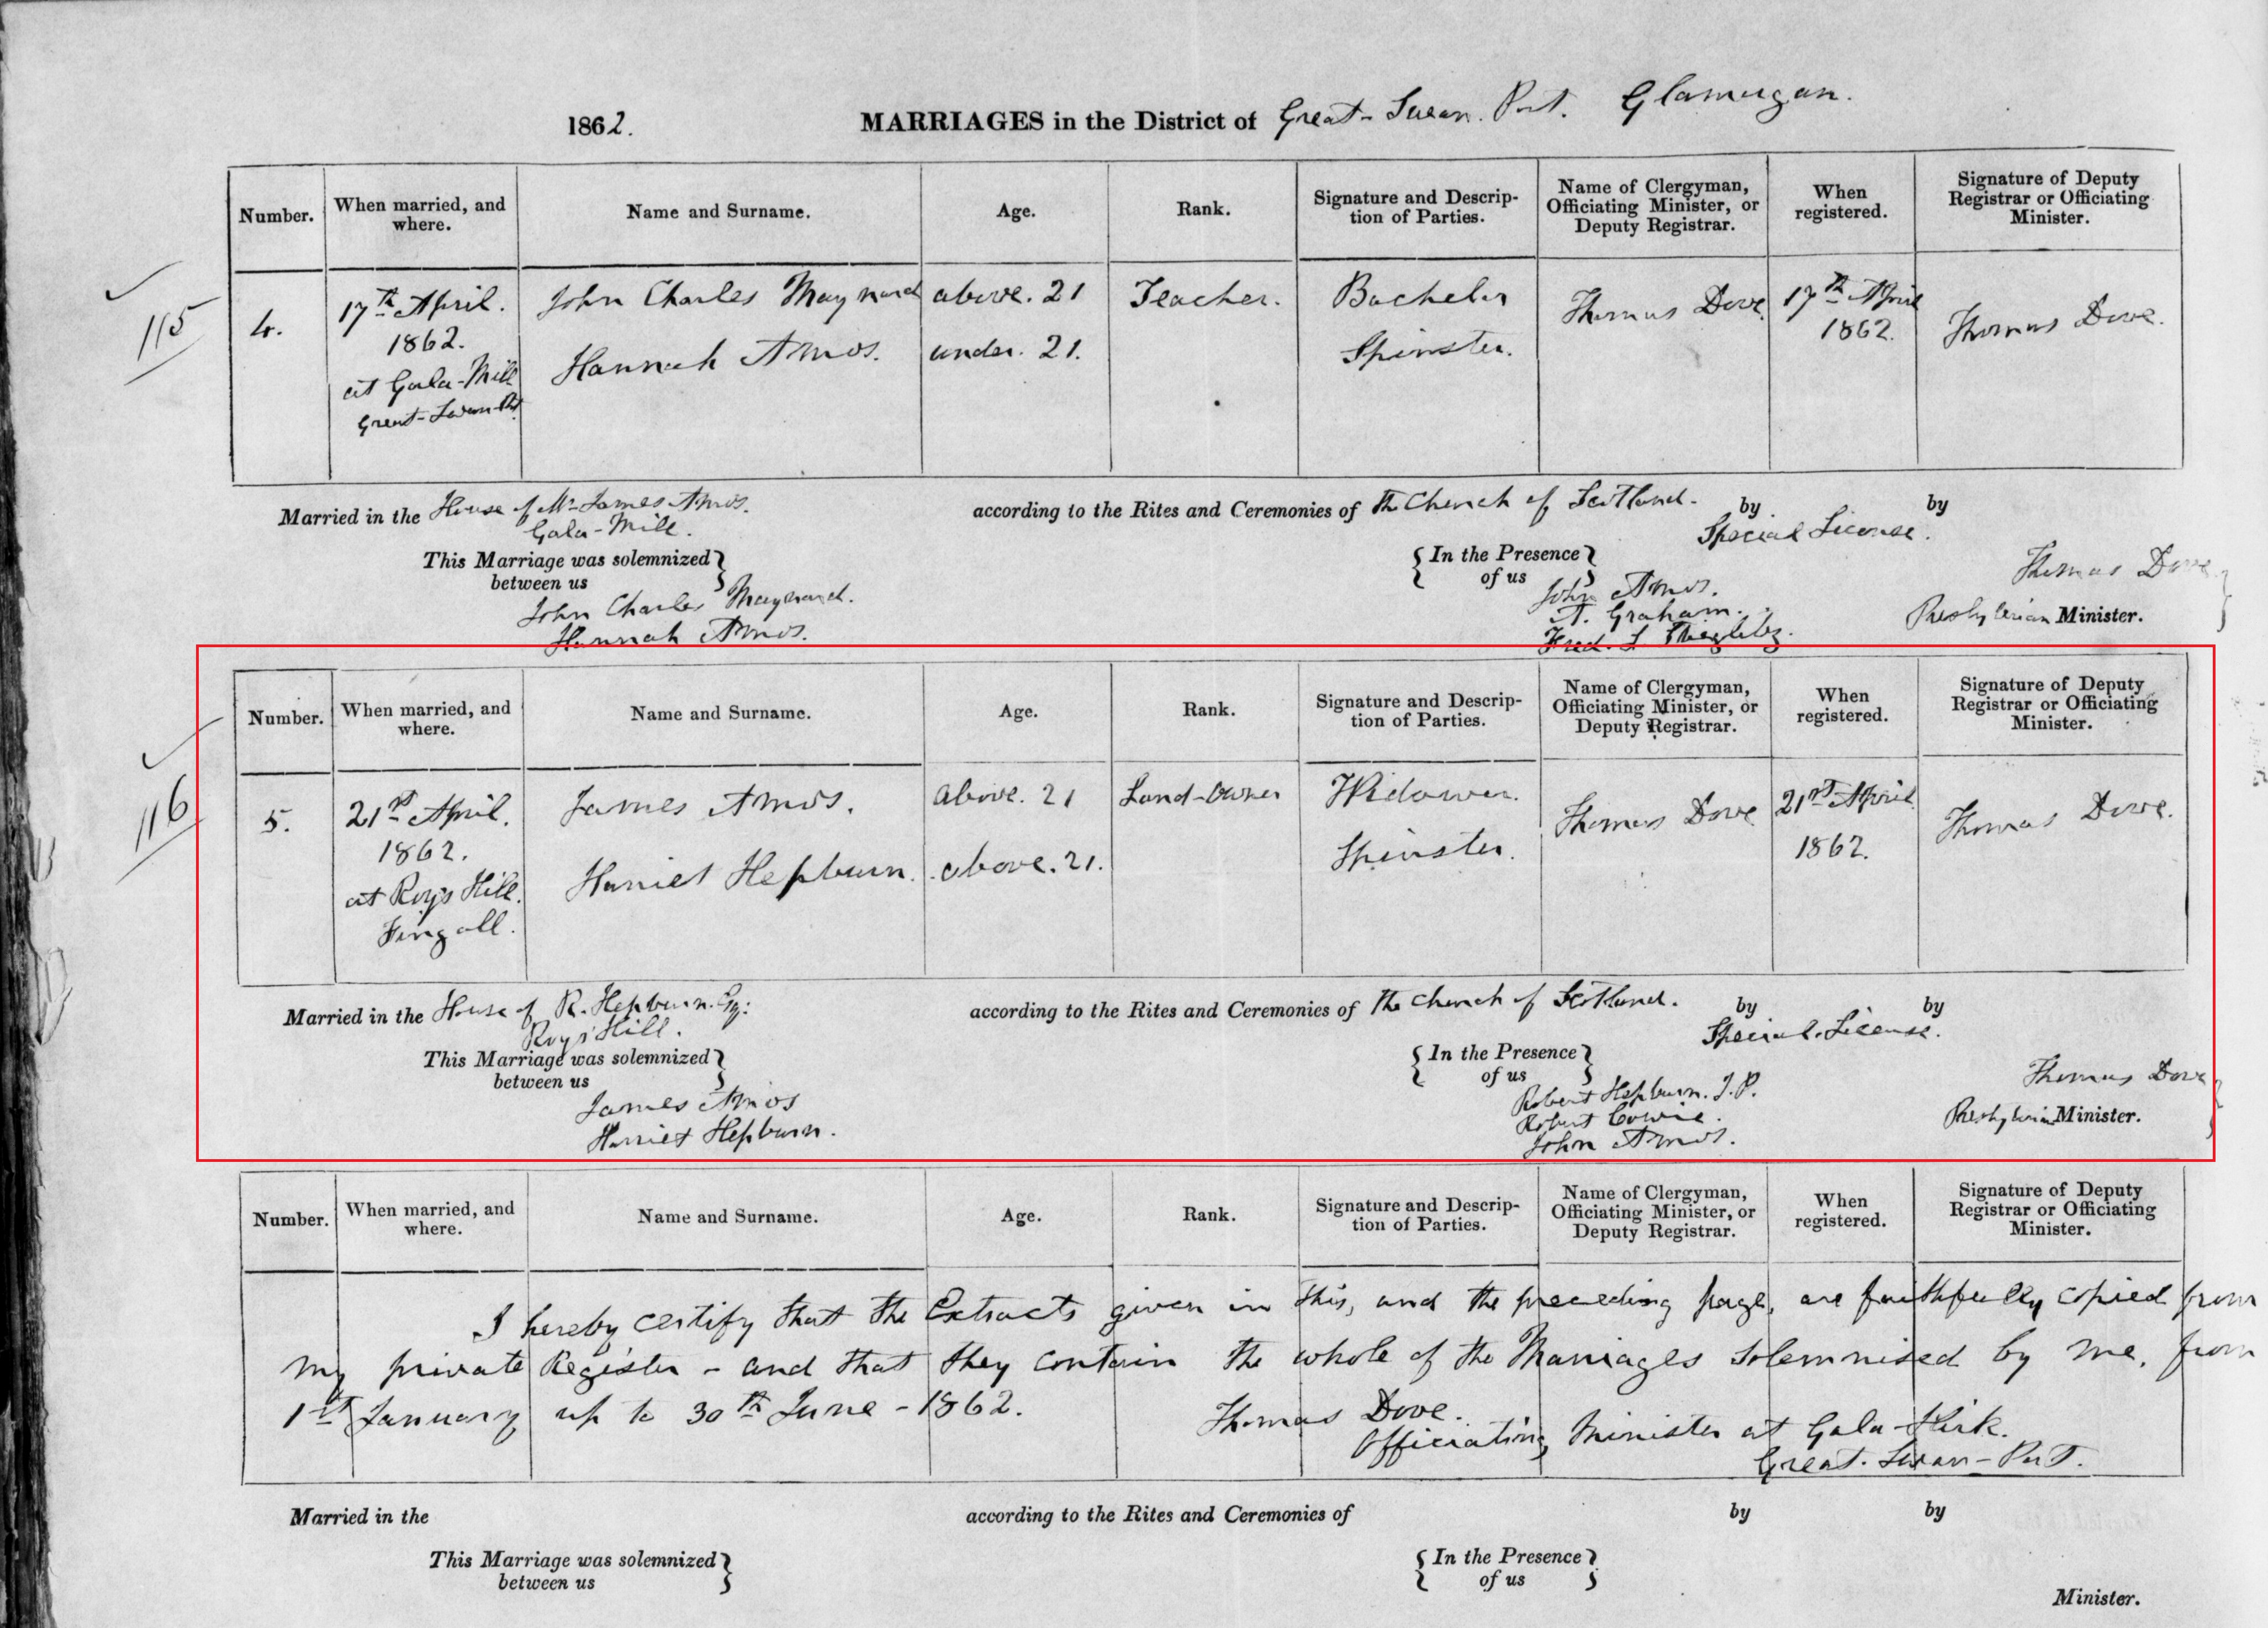 1862. MARRIAGES in the District of Great-Swan. Port. Glamorgan.
Number. When married, and where. Name and Surname. Age. Rank. Signature and Description of Parties. Name of Clergyman, Officiating Minister, or Deputy Registrar. When registered. Signature of Deputy Registrar or Officiating Minister.
115
4.
17th April.
1862.
at Gala-Mill
Great-Swan-Port
John Charles Maynard
Hannah Amos.
above. 21
under. 21.
Teacher.
Bachelor
Spinster.
Thomas Dove.
17th April
1862.
Thomas Dove.
Married in the House of Mr James Amos.
Gala-Mill.
according to the Rites and Ceremonies of the Church of Scotland. by
Special License.
by
This Marriage was solemnized
between us
John Charles Maynard.
Hannah Amos.
In the Presence
of us
John Amos.
A. Graham.
Fred.
Thomas Dove
Presbyterian Minister.
Number. When married, and where. Name and Surname. Age. Rank. Signature and Description of Parties. Name of Clergyman, Officiating Minister, or Deputy Registrar. When registered. Signature of Deputy Registrar or Officiating Minister.
116
5.
21st April.
1862.
at Roy's Hill.
Fingall.
James Amos.
Harriet Hepburn.
above. 21
above. 21.
Land-owner
Widower.
Spinster.
Thomas Dove
21st April
1862.
Thomas Dove.
Married in the House of R. Hepburn. Esq:
Roys' Hill.
according to the Rites and Ceremonies of the Church of Scotland. by
Special. License.
by
This Marriage was solemnized
between us
James Amos
Harriet Hepburn.
In the Presence
of us
Robert Hepburn. J.P.
Robert Cowie.
John Amos.
Thomas Dove
Presbyterian Minister.
Number. When married, and where. Name and Surname. Age. Rank. Signature and Description of Parties. Name of Clergyman, Officiating Minister, or Deputy Registrar. When registered. Signature of Deputy Registrar or Officiating Minister.
I hereby certify that the Extracts given in this, and the preceding page, are faithfully copied from
my private Register - and that they contain the whole of the Marriages solemnised by me, from
1st January up to 30th June - 1862.
Thomas Dove.
Officiating Minister at Gala-Kirk.
Great. Swan-Port.
Married in the according to the Rites and Ceremonies of by by
This Marriage was solemnized
between us
In the Presence
of us
Minister.